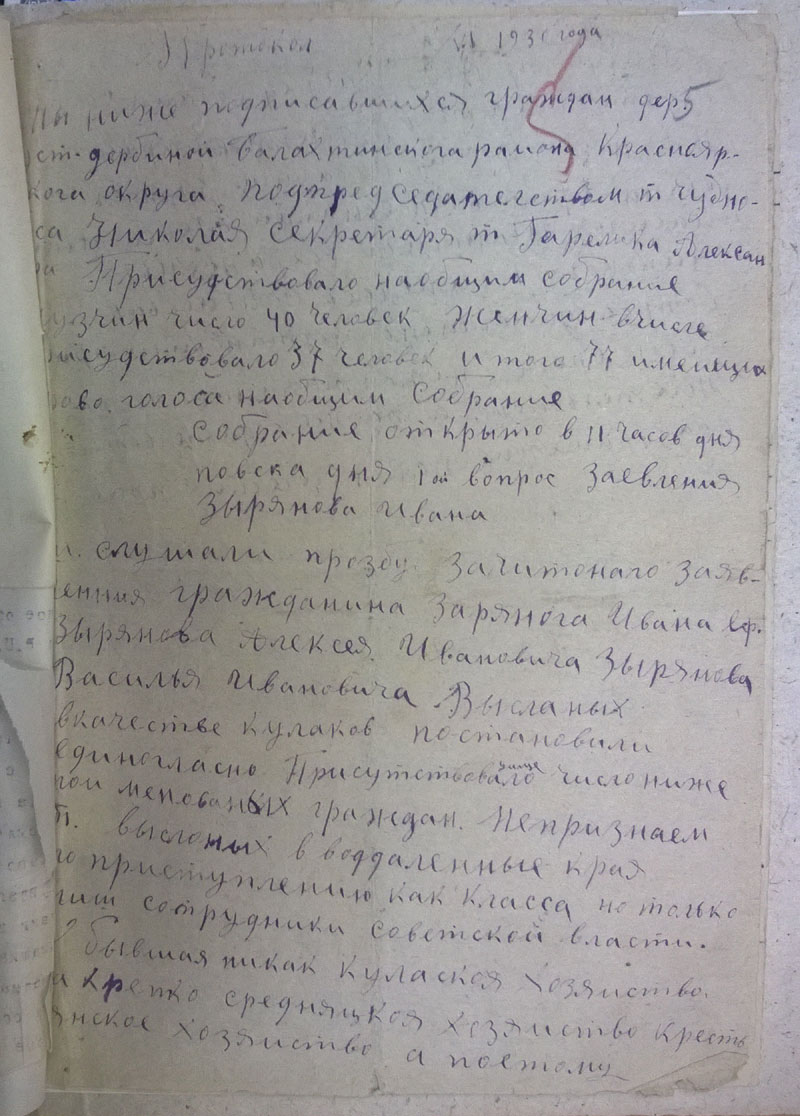 Протокол 1930 года
Мы ниже подписавшихся граждан дер 5
ст. дербиной балахтинского района Краснояр-
кого округа. Подпредседателством т чудно-
са Николая Секретаря т Гарелика Алексан
ра Присудствовало наобщим собрание
узчин число 40 человек Женчин вчисле
исудствовало 37 человек итого 77 имеющих
раво голоса наобщим Собрание
Собрание открыто в 11 часов дня
повска дня 1 ой вопрос Заевления
Зырянова Ивана
слушали прозбу Зачитонаго Заяв-
ления гражданина Зарянога Ивана Еф.
Зырянова Алексея Ивановича Зырянова
Василья Ивановича Высланых
вкачестве кулаков постановили
единогласно Присутствовало число ниже
выше
пои менованых граждан. Непризнаем
выслоных в воддаленные края
по приступлению как класса но только
лиш сотрудники Советской власти.
бывшая никак кулаская хозяиство
крепко средняцкоя хозяиство кресть
янское хозяиство а поетому